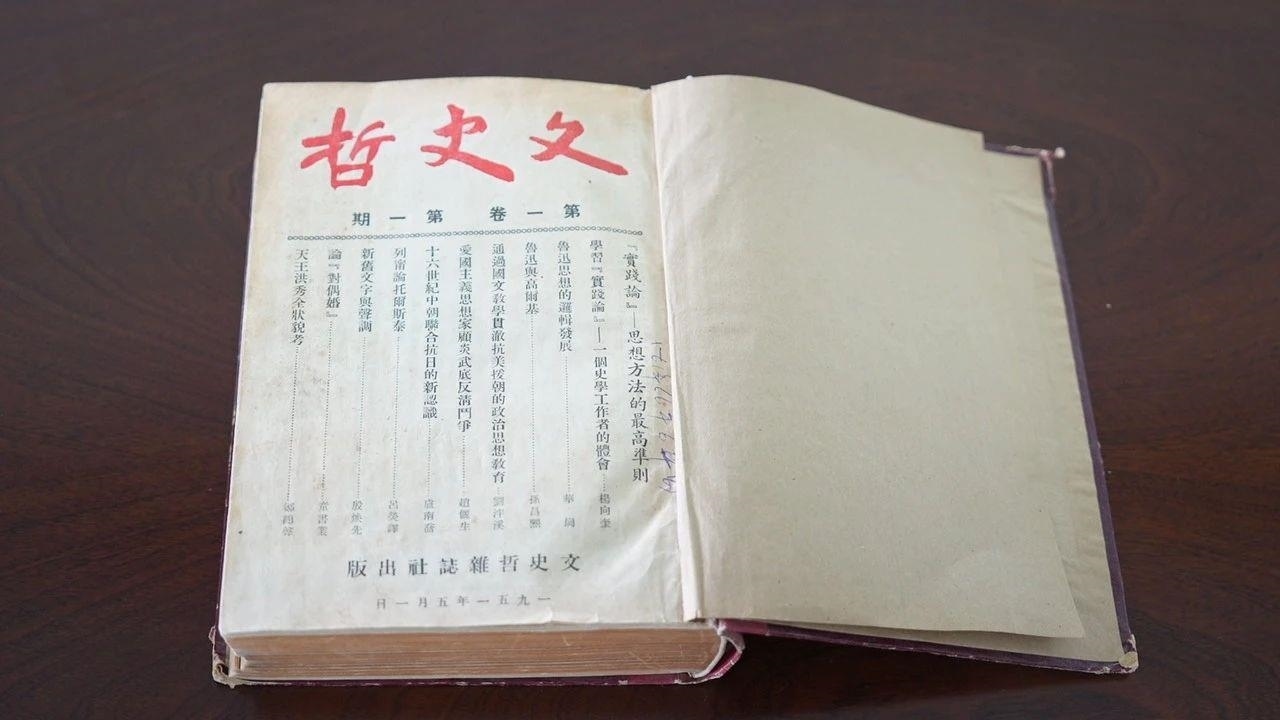 文史哲
第一卷 第一期
『實踐論』——思想方法的最高準則
學習『實踐論』——一個史學工作者的體會……楊向奎
魯迅思想的邏輯發展……華岗
魯迅與高爾基……孫昌熙
通過國文敎學貫澈抗美援朝的政治思想敎育……劉泮溪
愛國主義思想家顧炎武底反清鬥爭……趙儷生
十六世紀中朝聯合抗日的新認識……盧南喬
列甯論托爾斯泰……呂熒譯
新舊文字與聲調……殷煥先
論『對偶婚』……童書業
天王洪秀全狀貌考……
文史哲雜誌社出版
一九五一年五月一日